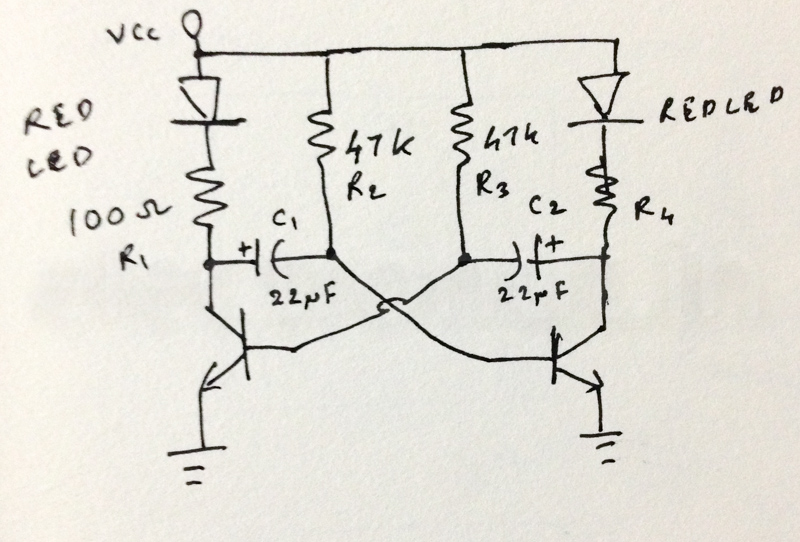 VCC
RED
LED
100Ω
R1
+
C1
22µF
47K
R2
47k
R3
C2
+
22µF
RED LED
R4